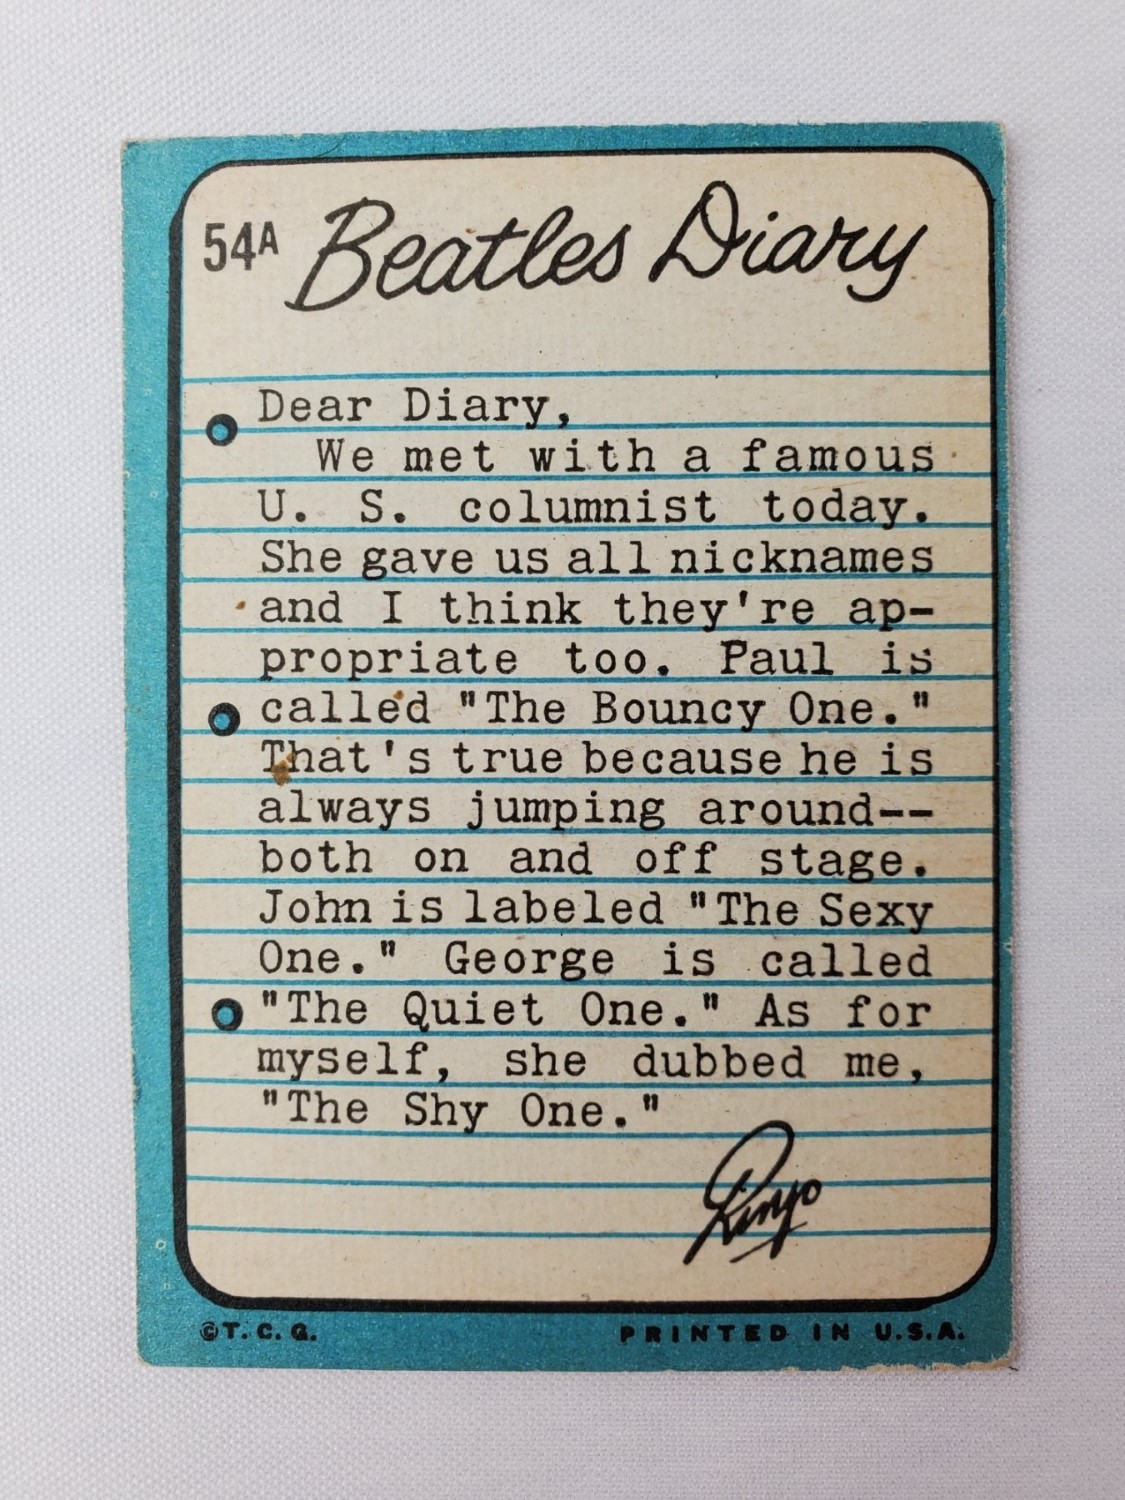 54A Beatles Diary
Dear Diary,
We met with a famous
U. S. columnist today.
She gave us all nicknames
and I think they're ap-
propriate too. Paul is
called "The Bouncy One."
That's true because he is
always jumping around--
both on and off stage.
John is labeled "The Sexy
One." George is called
"The Quiet One." As for
myself, she dubbed me,
"The Shy One."
Ringo
©T. C. G. PRINTED IN U.S.A.